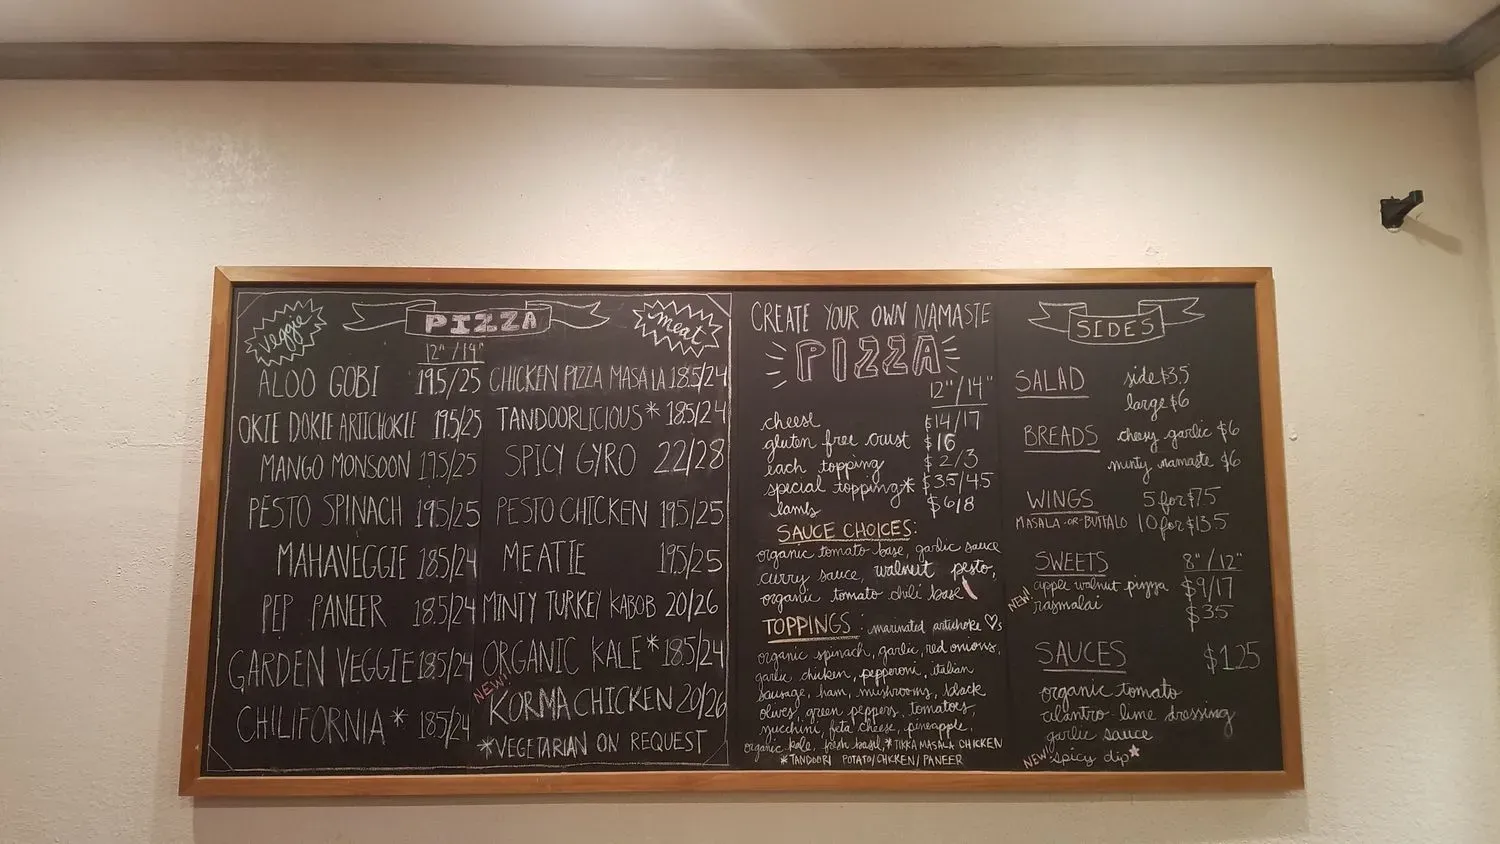 veggie
PIZZA
meat
12" / 14"
ALOO GOBI 19.5/25
OKIE DOKIE ARTICHOKIE 19.5/25
MANGO MONSOON 19.5/25
PESTO SPINACH 19.5/25
MAHAVEGGIE 18.5/24
PEP PANEER 18.5/24
GARDEN VEGGIE 18.5/24
CHILIFORNIA* 18.5/24
CHICKEN PIZZA MASALA 18.5/24
TANDOORLICIOUS* 18.5/24
SPICY GYRO 22/28
PESTO CHICKEN 19.5/25
MEATIE 19.5/25
MINTY TURKEY KABOB 20/26
ORGANIC KALE* 18.5/24
NEW!
KORMA CHICKEN 20/26
*VEGETARIAN ON REQUEST
CREATE YOUR OWN NAMASTE
PIZZA
12" / 14"
cheese $14/17
gluten free crust $16
each topping $2/3
special topping* $3.5/4.5
lamb $6/8
SAUCE CHOICES:
organic tomato base, garlic sauce
curry sauce, walnut pesto,
organic tomato chili base
TOPPINGS: marinated artichoke ♡s
organic spinach, garlic, red onions,
garlic chicken, pepperoni, italian
sausage, ham, mushrooms, black
olives, green peppers, tomatoes,
zucchini, feta cheese, pineapple,
organic kale, fresh basil, *TIKKA MASALA CHICKEN
*TANDOORI POTATO/CHICKEN/PANEER
SIDES
SALAD side $3.5
large $6
BREADS cheesy garlic $6
minty namaste $6
WINGS 5 for $7.5
MASALA -OR- BUFFALO 10 for $13.5
SWEETS 8" / 12"
apple walnut pizza $9/17
NEW! rasmalai $3.5
SAUCES $1.25
organic tomato
cilantro-lime dressing
garlic sauce
NEW! spicy dip★